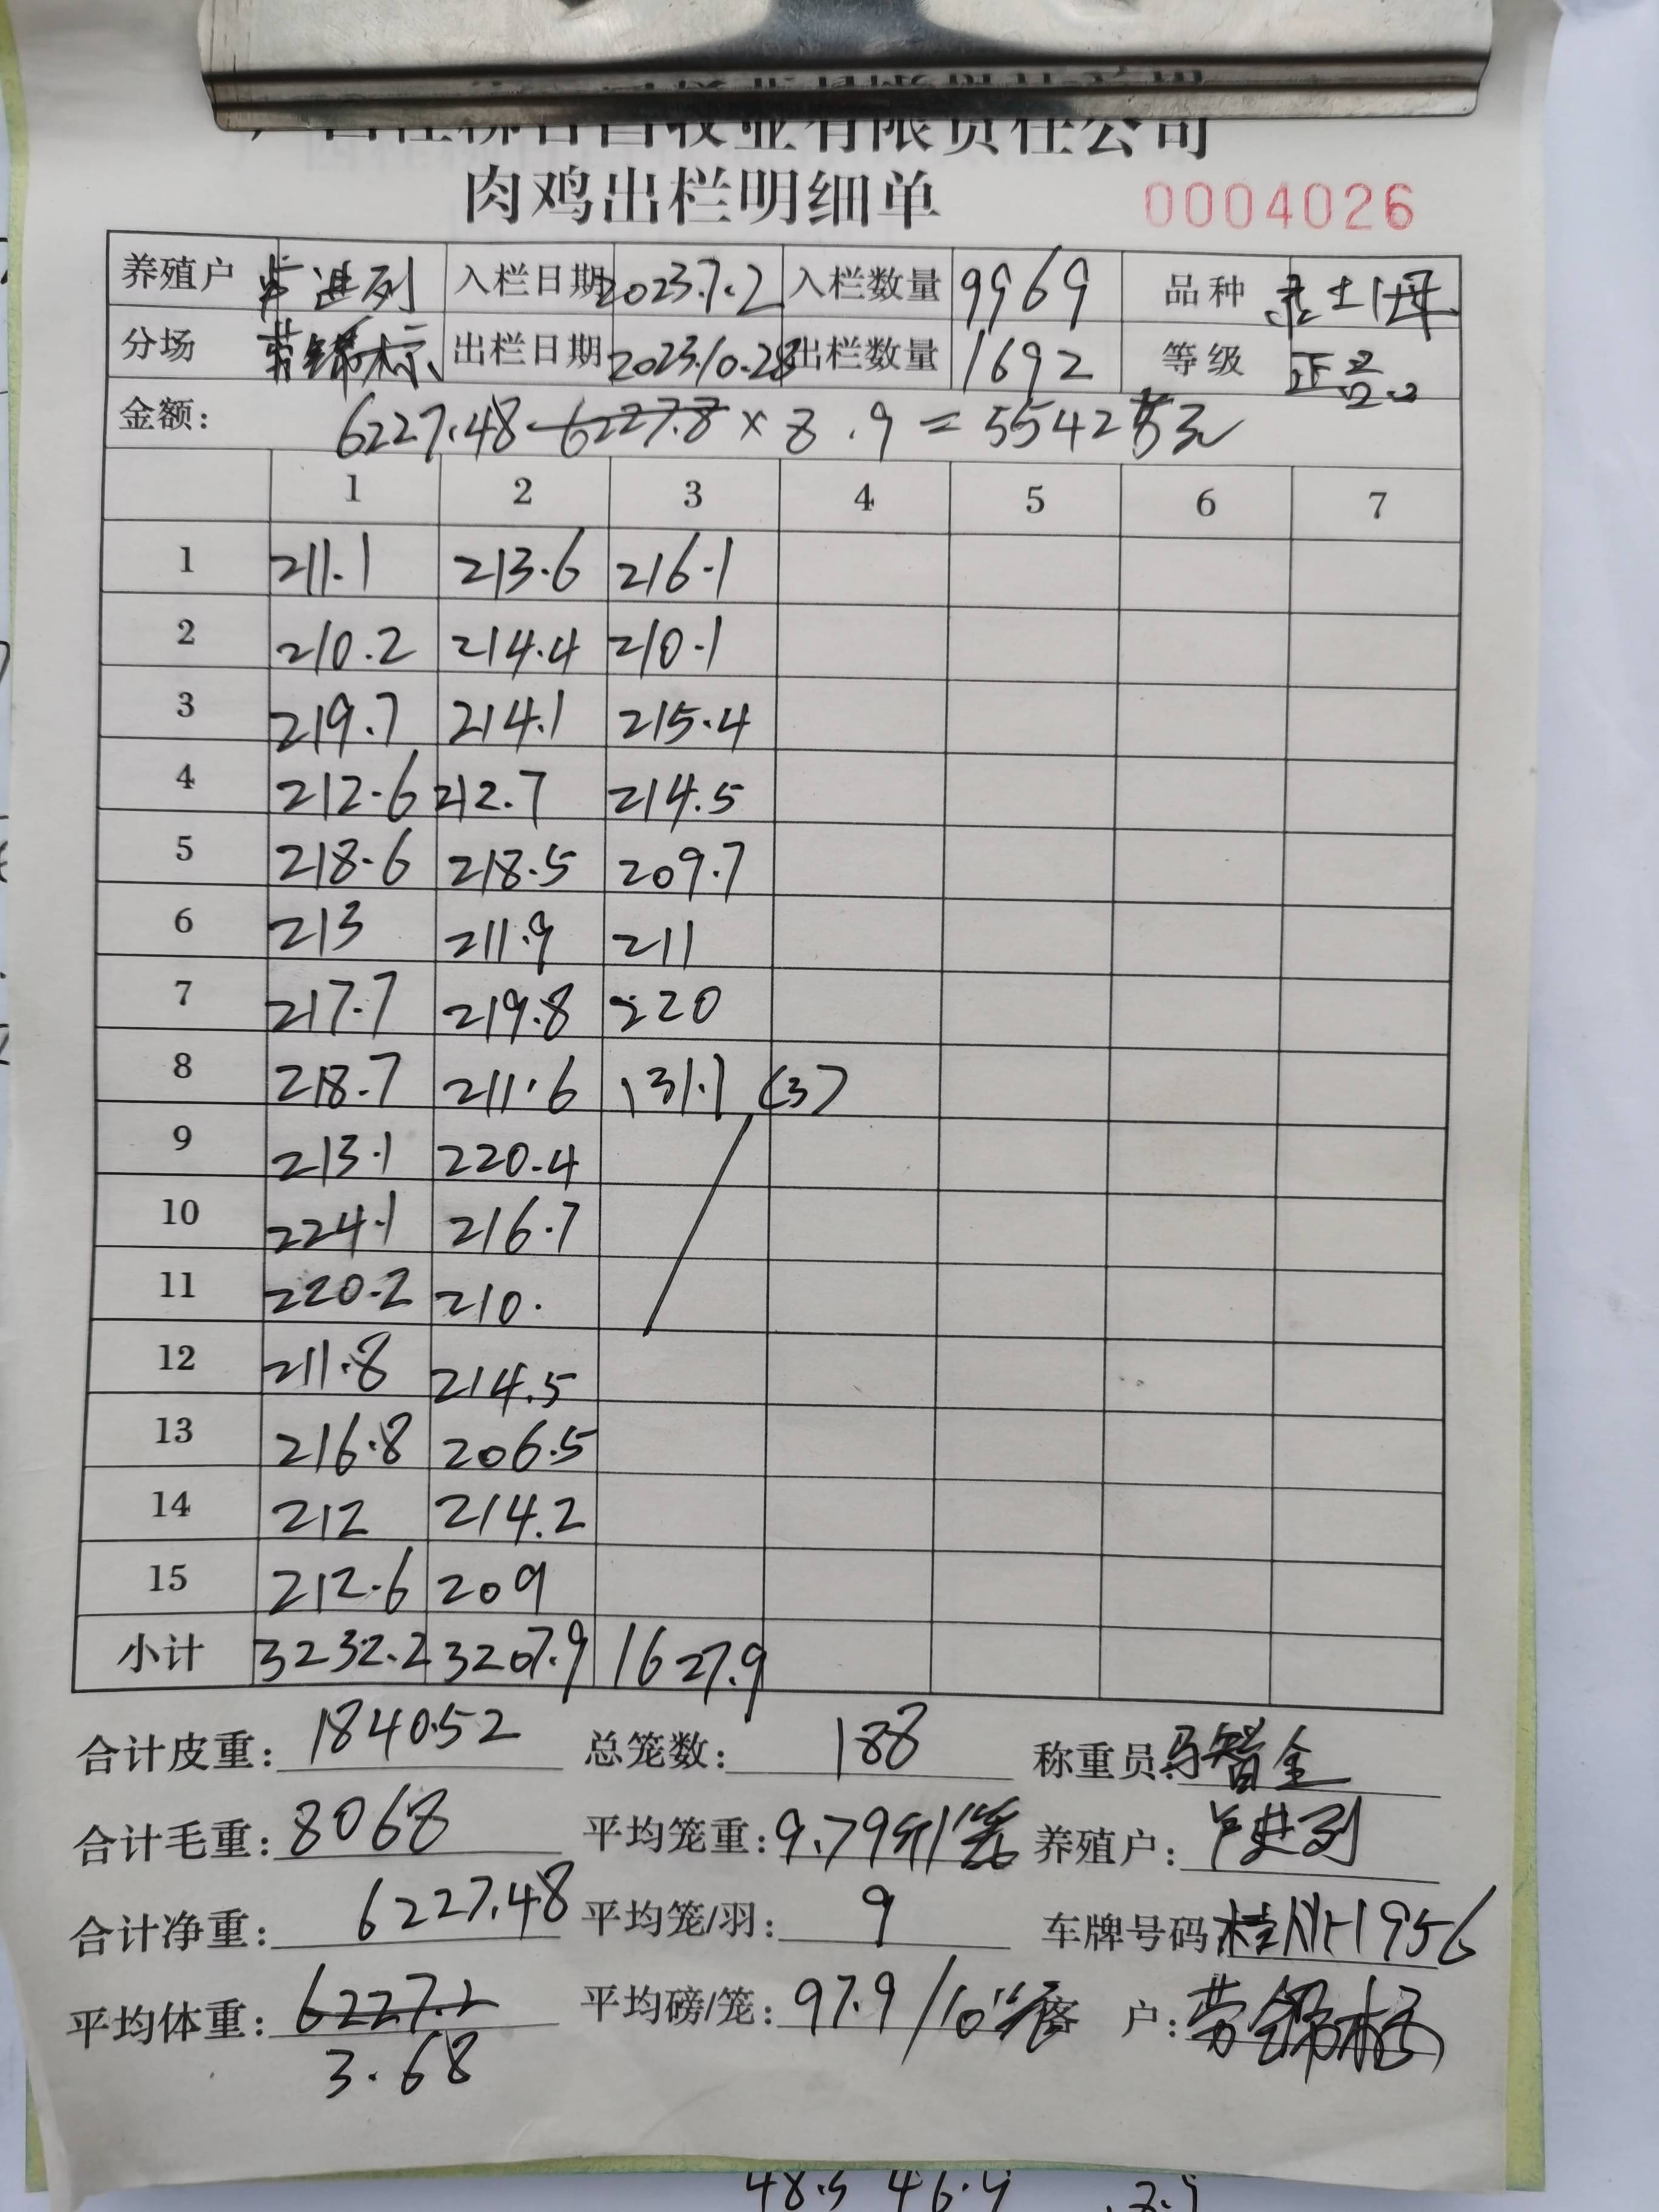 牧业有限责任公司
肉鸡出栏明细单 0004026
养殖户 进列 入栏日期 2023.7.2 入栏数量 9969 品种 土1母
分场 劳锦标 出栏日期 2023.10.28 出栏数量 1692 等级 正品
金额: 6227.48 6227.8 × 8.9 = 55424元
1 2 3 4 5 6 7
1 211.1 213.6 216.1
2 210.2 214.4 210.1
3 219.7 214.1 215.4
4 212.6 212.7 214.5
5 218.6 218.5 209.7
6 213 211.9 211
7 217.7 219.8 220
8 218.7 211.6 131.1 (3)
9 213.1 220.4
10 224.1 216.7
11 220.2 210.
12 211.8 214.5
13 216.8 206.5
14 212 214.2
15 212.6 209
小计 3232.2 3207.9 1627.9
合计皮重: 1840.52 总笼数: 188 称重员: 马智全
合计毛重: 8068 平均笼重: 9.79斤/笼 养殖户: 卢进列
合计净重: 6227.48 平均笼/羽: 9 车牌号码 1956
平均体重: 6227.2 平均磅/笼: 97.9/10笼 户:
3.68
48.5 46.9